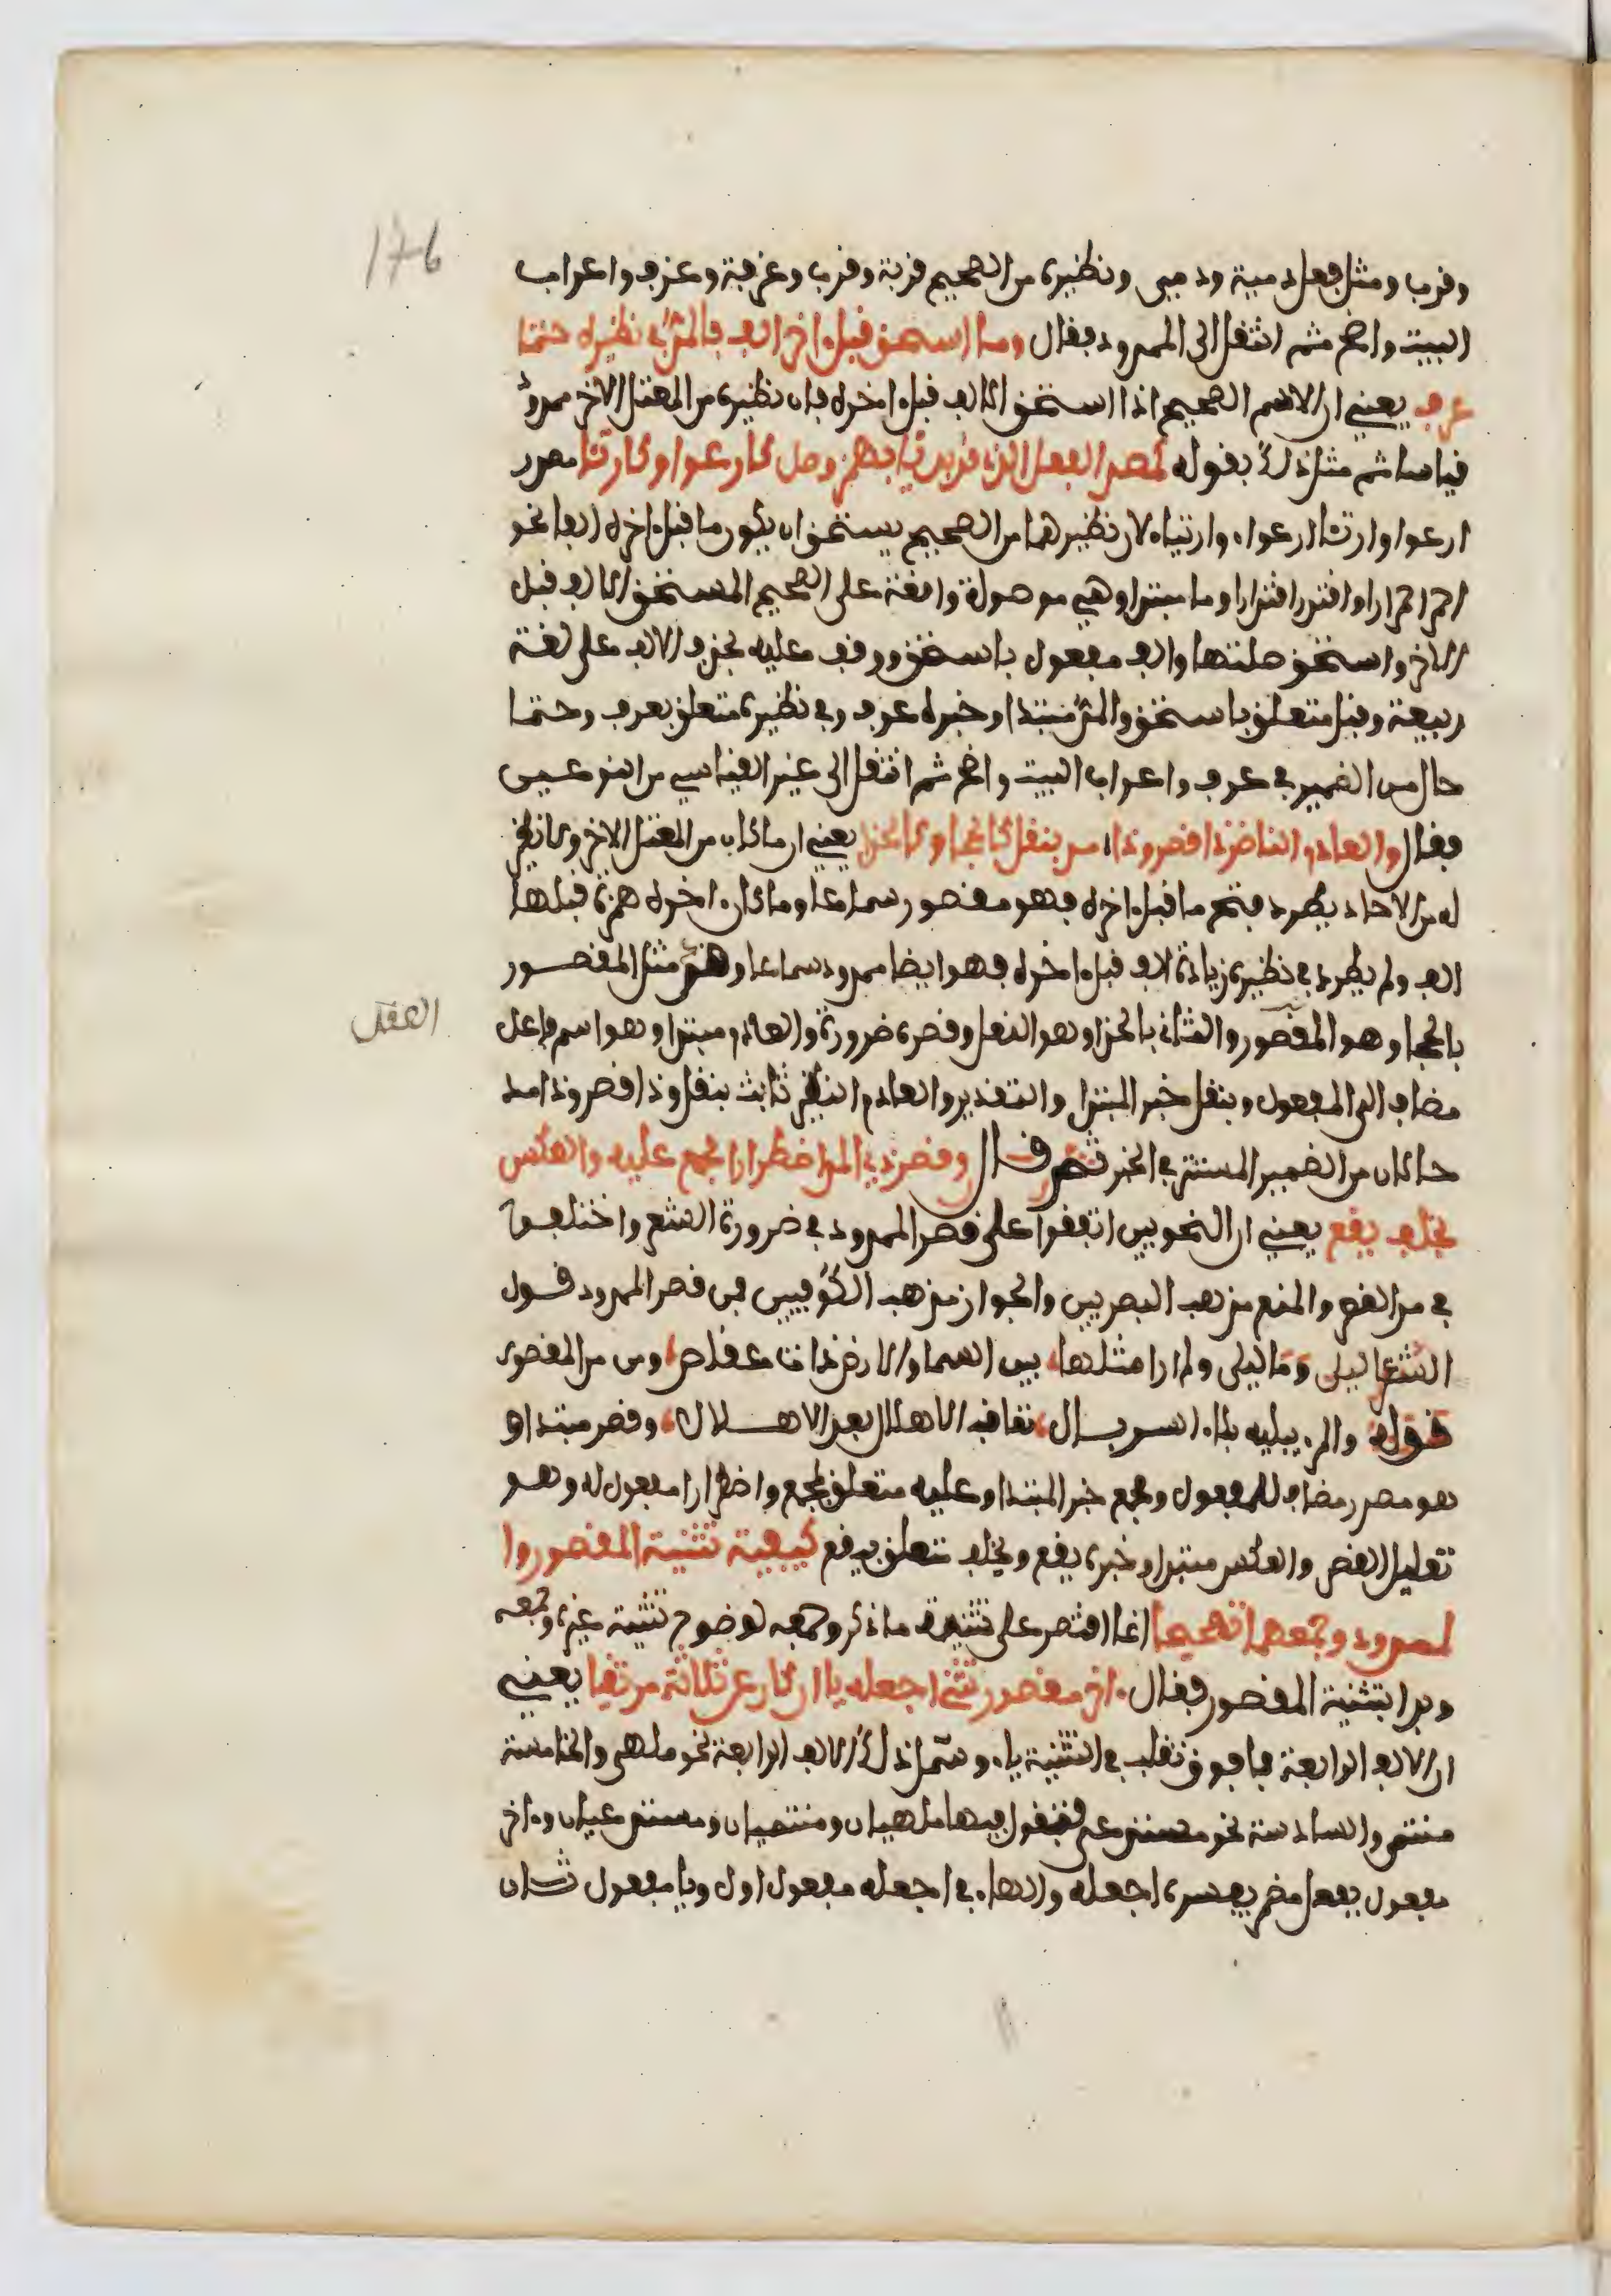 176
وقرب ومثل فعل دمية ودمى ونظيره من الصحيح قربة وقرب وغرفة وغرف واعراب
البيت واضح ثم انتقل الى الممدود فقال وما استحق قبل اخر الف فالمد في نظيره حتما
عرف يعني ان الاسم الصحيح اذا استحق الالف قبل اخره فان نظيره من المعتل الاخر ممدود
قياسا ثم مثل ذلك بقوله كمصدر الفعل الذي قد بدئا بهمز وصل كارعوا وكارتئا مصدر
ارعوا وارتئا ارعواء وارتياء لان نظيرهما من الصحيح يستحق ان يكون ما قبل اخره الفا نحو
احمر احمرارا واقتدر اقتدارا وما مبتدا وهي موصولة واقعة على الصحيح المستحق الالف قبل
الاخر واستحق صلتها والف مفعول باستحق ووقف عليه بحذف الالف على لغة
ربيعة وقبل متعلق باستحق والمد مبتدا وخبره عرف وفي نظيره متعلق بعرف وحتما
حال من الضمير في عرف واعراب البيت واضح ثم انتقل الى غير القياسي من النوعين
فقال والعادم النظير ذا قصر وذا مد بنقل كالحجا وكالحذا يعني ان ما كان من المعتل الاخر ولا نظير
له من الاحاد يطرد فتح ما قبل اخره فهو مقصور سماعا وما كان اخره همزة قبلها
الف ولم يطرد في نظيره زيادة الف قبل اخره فهو ايضا ممدود سماعا وقد مثل المقصور
بالحجا وهو المقصور والثاني بالحذا وهو النعل وقصره ضرورة والعادم مبتدا وهو اسم فاعل
العقل
مضاف الى المفعول وبنقل خبر المبتدا والتقدير والعادم النظير ثابت بنقل وذا قصر وذا مد
حالان من الضمير المستتر في الخبر ثم قال وقصر ذي المد اضطرارا مجمع عليه والعكس
بخلف يقع يعني ان النحويين اتفقوا على قصر الممدود في ضرورة الشعر واختلفوا
في مد المقصور والمنع مذهب البصريين والجواز مذهب الكوفيين فمن قصر الممدود قول
الشاعر ليلى وما ليلى ولم ار مثلها بين السما والارض ذات عقاص ومن مد المقصور
قوله والمرء يبليه بلاء السربال تعاقب الاهلال بعد الاهلال وقصر مبتدا و
هو مصدر مضاف للمفعول ومجمع خبر المبتدا وعليه متعلق بمجمع واضطرارا مفعول له وهو
تعليل لقصر والعكس مبتدا وخبره يقع وبخلف متعلق بيقع كيفية تثنية المقصور وا
لممدود وجمعهما تصحيحا انما اقتصر على تثنية ما ذكر وجمعه لوضوح تثنية غيره وجمعه
وبدا بتثنية المقصور فقال اخر مقصور تثني اجعله يا ان كان عن ثلاثة مرتقيا يعني
ان الالف الرابعة فما فوق تقلب في التثنية ياء وشمل ذلك الالف الرابعة نحو ملهى والخامسة
منتمى والسادسة نحو مستدعى فتقول فيها ملهيان ومنتميان ومستدعيان واخر
مفعول بفعل مضمر يفسره اجعله والهاء في اجعله مفعول اول ويا مفعول ثان